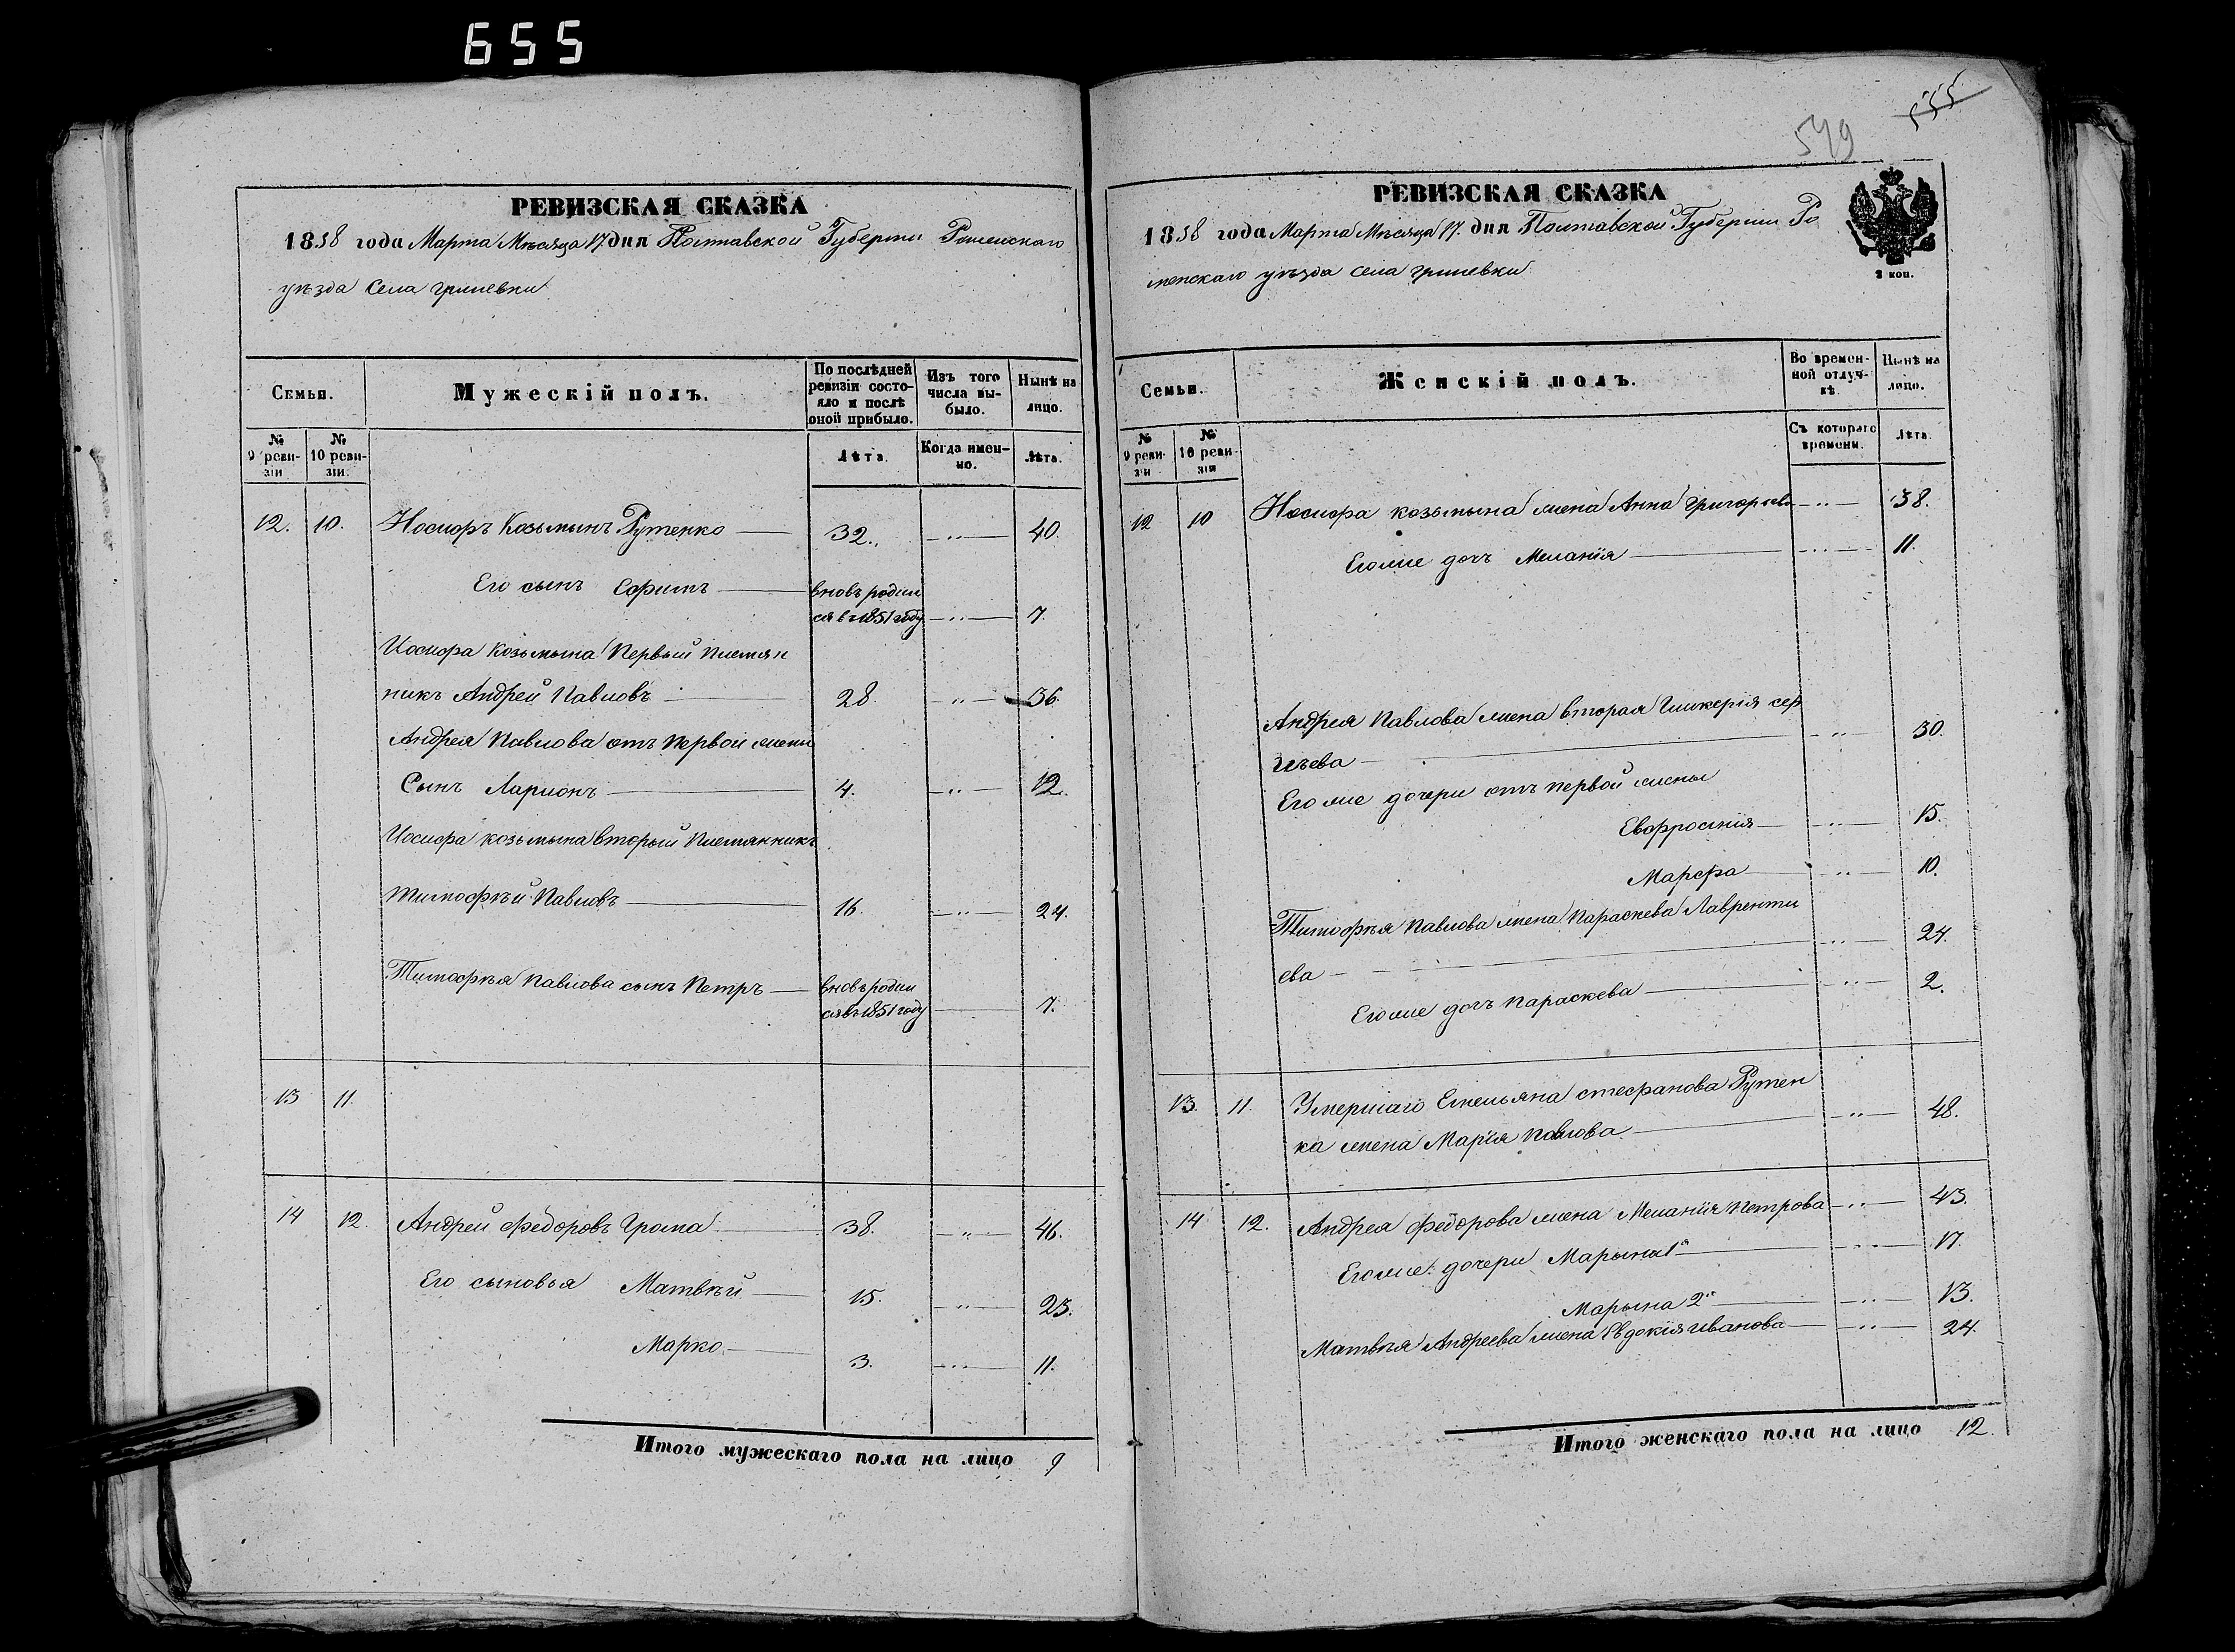 655
РЕВИЗСКАЯ СКАЗКА
1858 года Марта Мѣсяца 17 дня Полтавской Губерніи Роменскаго
уѣзда села гриневки
Семьи.
Мужескій полъ.
По послѣдней ревизіи состояло и послѣ оной прибыло.
Изъ того числа выбыло.
Нынѣ на лицо.
№ 9 ревизіи
№ 10 ревизіи.
Лѣта.
Когда именно.
Лѣта.
12. 10. Иосифъ Козьминъ Рутенко 32. 40.
Его сынъ Ефимъ вновь родил
ся въ 1851 году 7.
Иосифа Козьмина Первый племян
никъ Андрей Павловъ 28. 36.
Андрея Павлова отъ первой жены
Сынъ Ларионъ 4. 12.
Иосифа козьмина вторый племянникъ
тимофѣй Павловъ 16. 24.
Тимофѣя Павлова сынъ Петръ вновь родил
ся въ 1851 году 7.
13 11.
14 12. Андрей Федоровъ Грома 38. 46.
Его сыновья Матвѣй 15. 23.
Марко 3. 11.
Итого мужескаго пола на лицо 9
555
549
РЕВИЗСКАЯ СКАЗКА
1858 года Марта Мѣсяца 17. дня Полтавской Губерніи Ро
менскаго уѣзда села гриневки
2 коп.
Семьи.
Женскій полъ.
Во временной отлучкѣ
Нынѣ на лицо.
№ 9 ревизіи
№ 10 ревизіи
Съ котораго времени.
Лѣта.
12 10 Иосифа козьмина жена Анна григорьева 38.
Его же дочь Меланія 11.
Андрея Павлова жена вторая Гликерія сер
гѣева 30.
Его же дочери отъ первой жены
Евфросинія 15.
Марфа 10.
Тимофѣя Павлова жена Параскева Лавренти
ева 24.
Его же дочь Параскева 2.
13. 11. Умершаго Емельяна стефанова Рутен
ка жена Марія Павлова 48.
14 12. Андрея Федорова жена Меланія Петрова 43.
Его же дочери Марына 1я 17.
Марына 2я 13.
Матвѣя Андреева жена Евдокія иванова 24.
Итого женскаго пола на лицо 12.